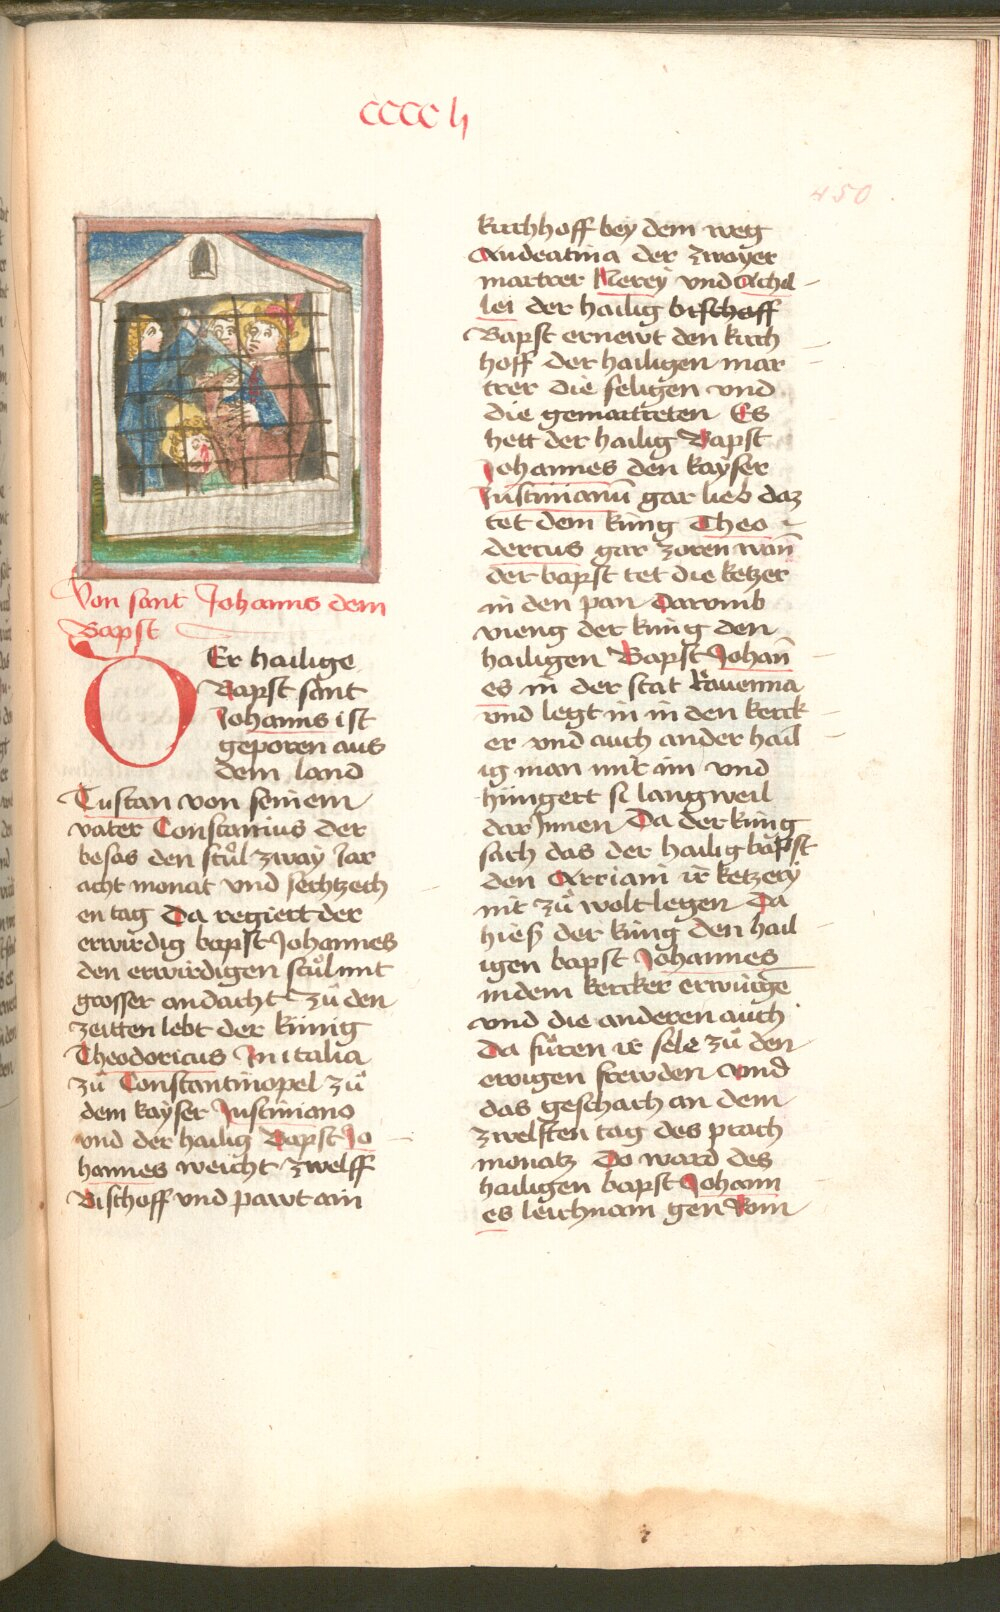 cccc lj
450
Von sant Johanns dem
Bapst
DEr hailige
Bapst sant
Johanns ist
geporen aus
dem land
Tustan von seinem
vater Constantius der
besas den stůl zway Jar
acht monat vnd sechtzech
en tag Da regiert der
erwirdig bapst Johannes
den erwirdigen stůl mit
grosser andacht zů den
zeitten lebt der künig
Theodoricus In italia
zů Constantinopel zů
dem kayser Justiniano
vnd der hailig Bapst Jo
hannes weicht zwelff
Bischoff vnd pawt ain
kirchhoff bey dem weg
Audeatina der zwayer
martrer Nerey vnd Achel
lei der hailig bischoff
Bapst ernewt den kirch
hoff der hailigen mar
trer die seligen vnd
die gemartreten Es
hett der hailig Bapst
Johannes den kayser
Justinianū gar lieb daz
tet dem kung Theo
dericus gar zoren wañ
der bapst tet die ketzer
in den pan Darvmb
vieng der kung den
hailigen Bapst Johañ
es in der stat Rauenna
vnd legt in in den kerck
er vnd auch ander hail
ig man mit im vnd
hüngert si lang weil
dar Innen Da der küng
sach das der hailig bapst
den Arriani ir ketzery
nit zů wolt legen Da
hieß der küng den hail
igen bapst Johannes
in dem kercker erwürge
vnd die anderen auch
Da fůren ir sele zů den
ewigen frewden vnd
das geschach an dem
zwelften tag des prach
monatz Do ward des
hailigen bapst Johann
es leichnam gen Rom